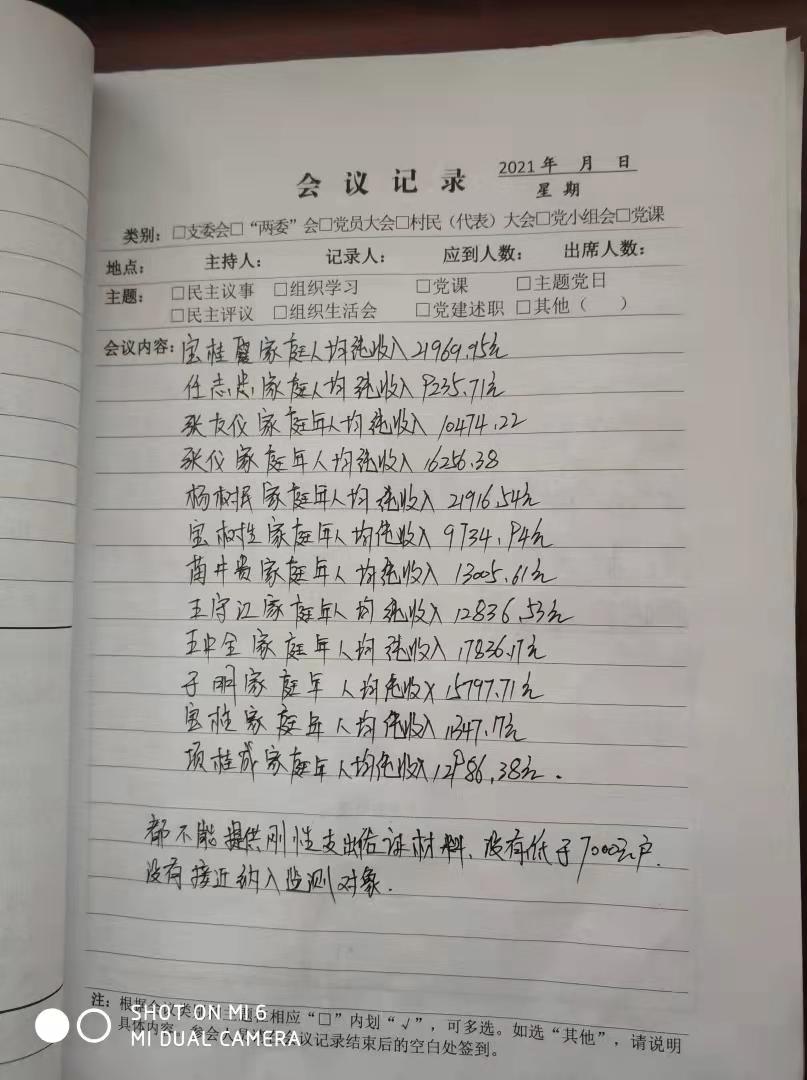 会议记录
2021年 月 日
星期
类别：□支委会□“两委”会□党员大会□村民（代表）大会□党小组会□党课
地点： 主持人： 记录人： 应到人数： 出席人数：
主题：□民主议事 □组织学习 □党课 □主题党日
□民主评议 □组织生活会 □党建述职 □其他（ ）
会议内容：宝桂 家庭人均纯收入21969.95元
任志忠家庭人均纯收入9235.71元
张友仪家庭年人均纯收入10474.22
张仪家庭年人均纯收入16256.38
杨树民家庭年人均纯收入21916.54元
宝树生家庭年人均纯收入9734.94元
井贵家庭年人均纯收入13005.61元
王守江家庭年人均纯收入12836.53元
王中全家庭年人均纯收入17836.17元
子明家庭年人均纯收入15797.71元
宝柱家庭年人均纯收入11347.7元
项桂成家庭年人均纯收入12986.38元.
都不能提供刚性支出佐证材料，没有低于7000元户.
没有接近纳入监测对象.
注：根据会议类 相应“□”内划“√”，可多选。如选“其他”，请说明
具体内容。参会人员 会议记录结束后的空白处签到。
SHOT ON MI 6
MI DUAL CAMERA